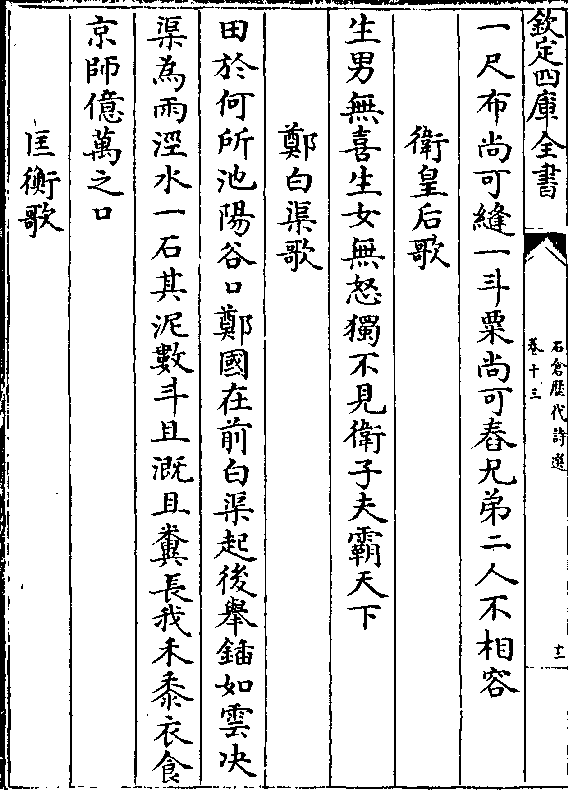 欽定四庫全書
石倉歴代詩選
卷十三
十二
一尺布尚可縫一斗粟尚可舂兄弟二人不相容
衛皇后歌
生男無喜生女無怒獨不見衛子夫霸天下
鄭白渠歌
田於何所池陽谷口鄭國在前白渠起後舉鍤如雲决
渠為雨涇水一石其泥數斗且溉且糞長我禾黍衣食
京師億萬之口
匡衡歌